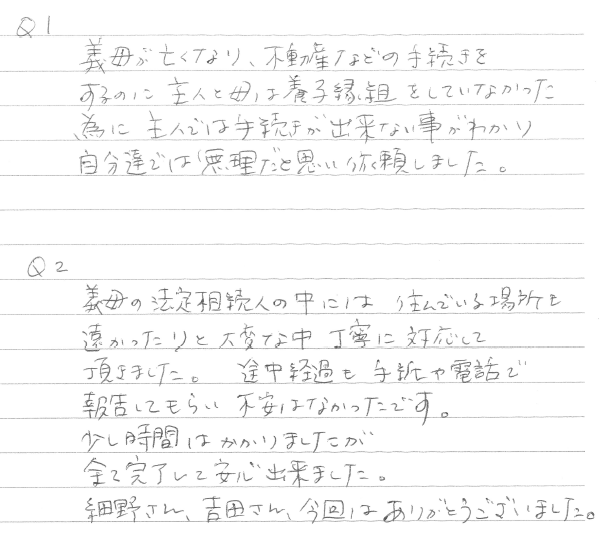 Q1
義母が亡くなり、不動産などの手続きを
するのに主人と母は養子縁組をしていなかった
為に主人では手続きが出来ない事がわかり
自分達では無理だと思い依頼しました。
Q2
義母の法定相続人の中には住んでいる場所も
遠かったりと大変な中丁寧に対応して
頂きました。途中経過も手紙や電話で
報告してもらい不安はなかったです。
少し時間はかかりましたが
全て完了して安心出来ました。
細野さん、吉田さん、今回はありがとうございました。